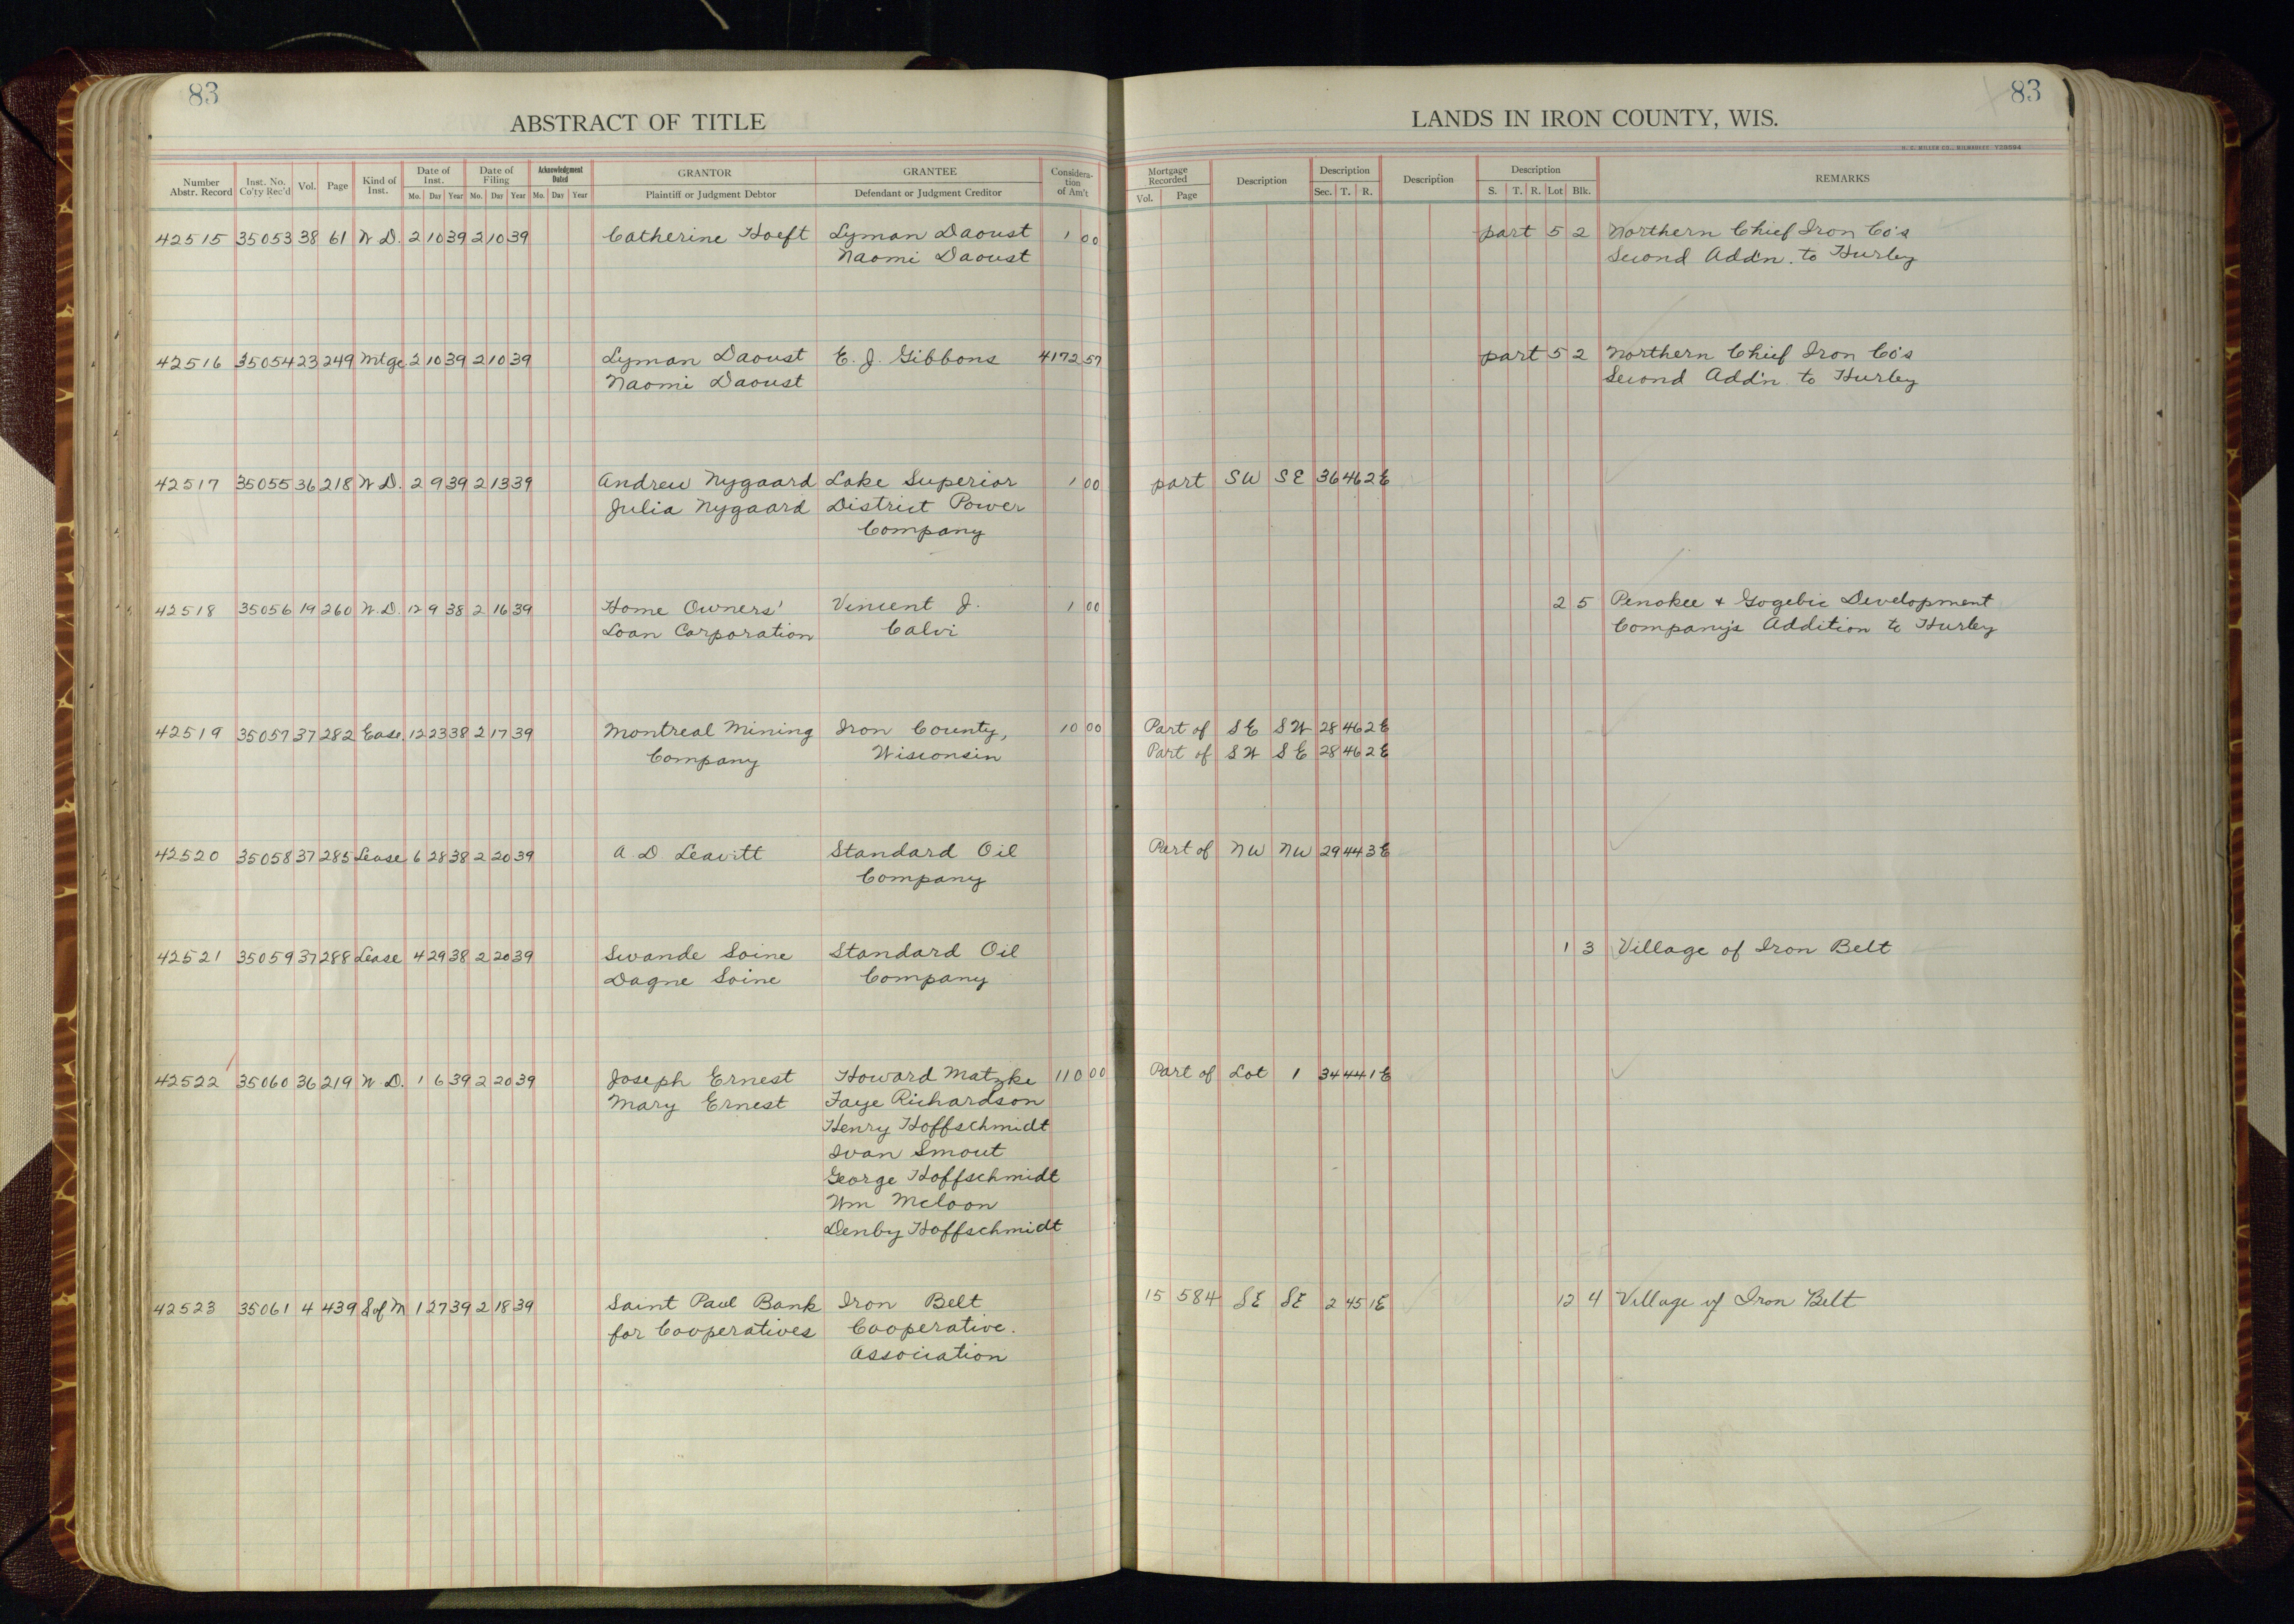 83
83
ABSTRACT OF TITLE
LANDS IN IRON COUNTY, WIS.
Number Abstr. Record
Inst. No. Co'ty Rec'd
Vol.
Page
Kind of Inst.
Date of Inst.
Mo. Day Year
Date of Filing
Mo. Day Year
Acknowledgment Dated
Mo. Day Year
GRANTOR
Plaintiff or Judgment Debtor
GRANTEE
Defendant or Judgment Creditor
Considera-tion of Am't
Mortgage Recorded
Vol. Page
Description
Description
Sec. T. R.
Description
Description
S. T. R. Lot Blk.
REMARKS
42515 35053 38 61 W.D. 2 10 39 2 10 39 Catherine Hoeft Lyman Daoust 1 00 part 5 2 Northern Chief Iron Co's
Naomi Daoust Second Add'n. to Hurley
42516 35054 23 249 Mtge 2 10 39 2 10 39 Lyman Daoust E. J. Gibbons 4172 57 part 5 2 Northern Chief Iron Co's
Naomi Daoust Second Add'n. to Hurley
42517 35055 36 218 W.D. 2 9 39 2 13 39 Andrew Nygaard Lake Superior 1 00 part SW SE 36 46 2E
Julia Nygaard District Power
Company
42518 35056 19 260 W.D. 12 9 38 2 16 39 Home Owners' Vincent J. 1 00 2 5 Penokee + Gogebic Development
Loan Corporation Calvi Company's Addition to Hurley
42519 35057 37 282 Ease. 12 23 38 2 17 39 Montreal Mining Iron County, 10 00 Part of SE SW 28 46 2E
Company Wisconsin Part of SW SE 28 46 2E
42520 35058 37 285 Lease 6 28 38 2 20 39 A. D. Leavitt Standard Oil Part of NW NW 29 44 3E
Company
42521 35059 37 288 Lease 4 29 38 2 20 39 Swande Soine Standard Oil 1 3 Village of Iron Belt
Dagne Soine Company
42522 35060 36 219 W.D. 1 6 39 2 20 39 Joseph Ernest Howard Matzke 110 00 Part of Lot 1 34 44 1E
Mary Ernest Faye Richardson
Henry Hoffschmidt
Ivan Smout
George Hoffschmidt
Wm McLoon
Denby Hoffschmidt
42523 35061 4 439 S of M 1 27 39 2 18 39 Saint Paul Bank Iron Belt 15 584 SE SE 2 45 1E 12 4 Village of Iron Belt
for Cooperatives Cooperative.
Association